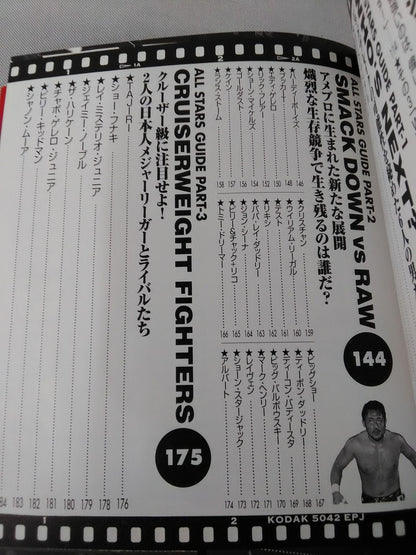 HO'S NEXT"
ALL STARS GUIDE PART-2
SMACK DOWN vs RAW
144
アメプロに生まれた新たな展開
熾烈な生存競争で生き残るのは誰だ?
★ハーディーボーイズ 146
★ブッカーT 148
★エディ・ゲレロ 150
★リック・フレアー 152
★ショーン・マイケルズ 154
★ゴールダスト 156
★ケイン 157
★ランス・ストーム 158
★クリスチャン 159
★ウィリアム・リーガル 160
★テスト 161
★リキシ 162
★ババ・レイ・ダッドリー 163
★ジョン・シーナ 164
★ビリー&チャック+リコ 165
★トミー・ドリーマー 166
★ビッグショー 167
★ディーボン・ダッドリー 168
★ディーコン・バティースタ 169
★ビッグ・バルボウスキー 170
★マーク・ヘンリー 171
★レイヴェン 172
★ショーン・スタージャック 173
★アルバート 174
ALL STARS GUIDE PART-3
CRUISERWEIGHT FIGHTERS
175
クルーザー級に注目せよ!
2人の日本人メジャーリーガーとライバルたち
★TAJIRI 176
★ショー・フナキ 178
★レイ・ミステリオ・ジュニア 179
★ジェイミー・ノーブル 180
★ザ・ハリケーン 181
★チャボ・ゲレロ・ジュニア 182
★ビリー・キッドマン 183
★シャノン・ムーア 84
1 2 KODAK 5042 EPJ